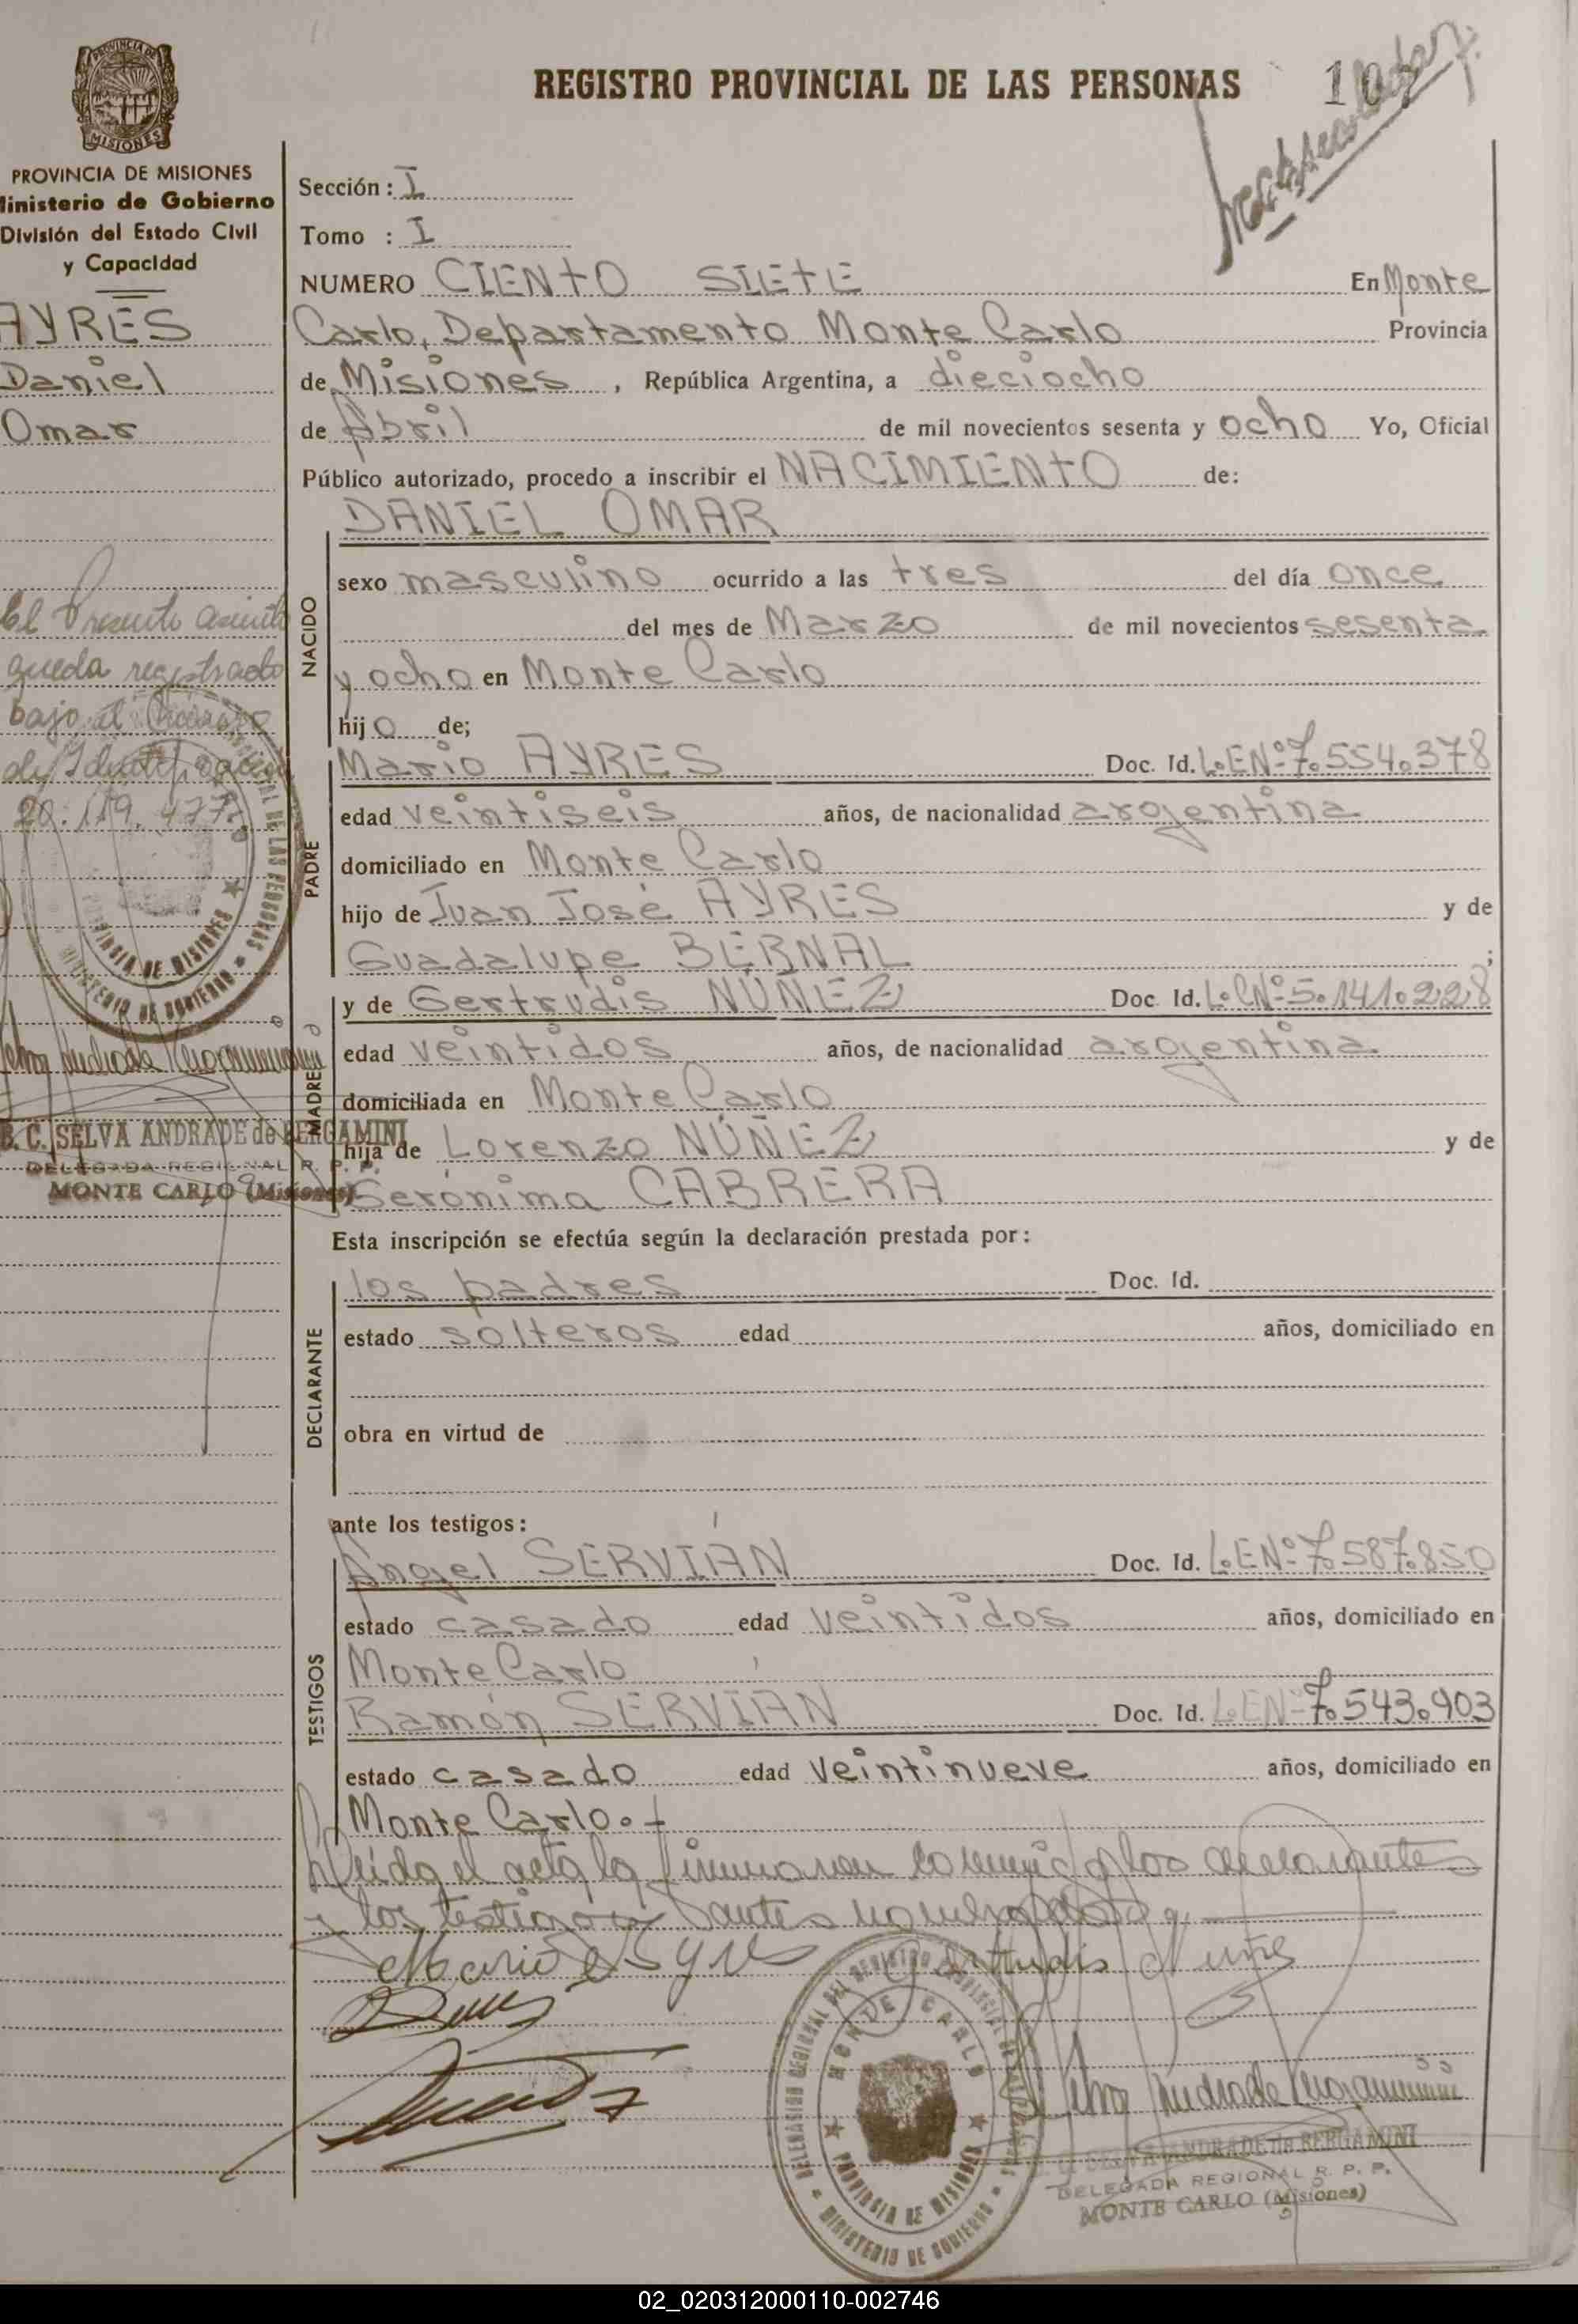 REGISTRO PROVINCIAL DE LAS PERSONAS
PROVINCIA DE
MISIONES
PROVINCIA DE MISIONES
Ministerio de Gobierno
División del Estado Civil
y Capacidad
AYRES
Daniel
Omar
El Presente asiento
queda registrado
bajo el Número
de Identificación
20.119.477
B. C. SELVA ANDRADE de BERGAMINI
DELEGADA REGIONAL R. P. P.
MONTE CARLO (Misiones)
Sección: I
Tomo : I
NUMERO CIENTO SIETE En Monte
Carlo, Departamento Monte Carlo Provincia
de Misiones, República Argentina, a dieciocho
de Abril de mil novecientos sesenta y ocho Yo, Oficial
Público autorizado, procedo a inscribir el NACIMIENTO de:
NACIDO
DANIEL OMAR
sexo masculino ocurrido a las tres del día once
del mes de Marzo de mil novecientos sesenta
y ocho en Monte Carlo
hijo de;
PADRE
Mario AYRES Doc. Id. L.E.Nº 7.554.378
edad veintiseis años, de nacionalidad argentina
domiciliado en Monte Carlo
hijo de Juan José AYRES y de
Guadalupe BERNAL ;
MADRE
y de Gertrudis NUÑEZ Doc. Id. L.C.Nº 5.141.228
edad veintidos años, de nacionalidad argentina
domiciliada en Monte Carlo
hija de Lorenzo NÚÑEZ y de
Gerónima CABRERA
Esta inscripción se efectúa según la declaración prestada por:
DECLARANTE
los padres Doc. Id.
estado solteros edad años, domiciliado en
obra en virtud de
ante los testigos:
TESTIGOS
Angel SERVIÁN Doc. Id. L.E.Nº 7.587.850
estado casado edad veintidos años, domiciliado en
Monte Carlo
Ramón SERVIÁN Doc. Id. L.E.Nº 7.543.903
estado casado edad veintinueve años, domiciliado en
Monte Carlo.-
Leída el acta la firmaron conmigo los declarantes
y los testigos antes nombrados
Mario Ayres Gertrudis Nuñez
DELEGACION REGIONAL DEL REGISTRO PROVINCIAL DE LAS PERSONAS
MONTE CARLO
PROVINCIA DE MISIONES
MINISTERIO DE GOBIERNO
B. C. SELVA ANDRADE de BERGAMINI
DELEGADA REGIONAL R. P. P.
MONTE CARLO (Misiones)
02_020312000110-002746